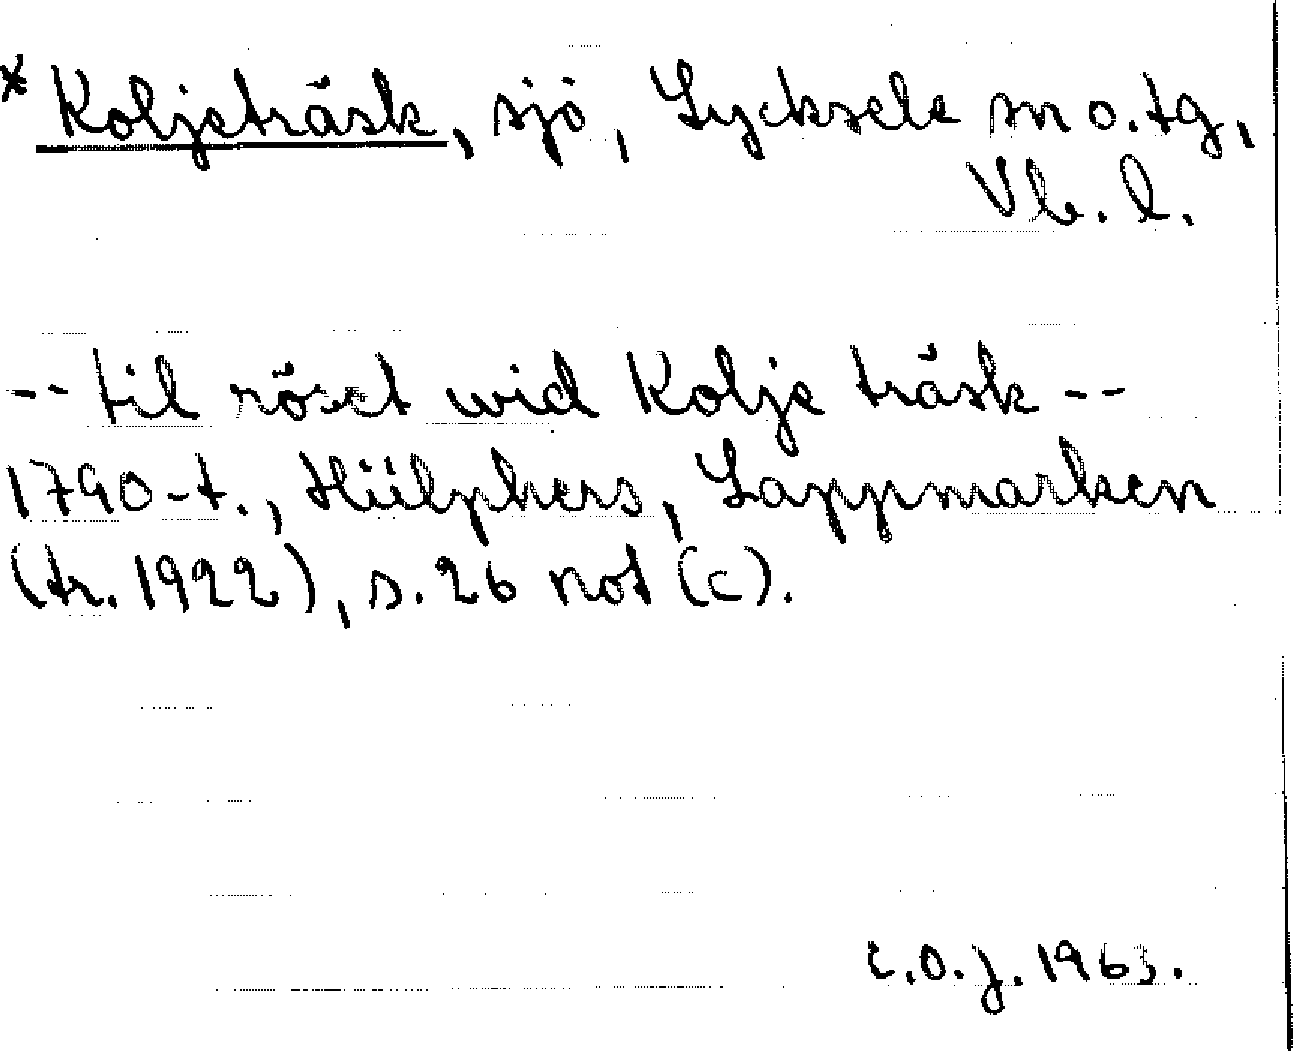 * Koljeträsk, sjö, Lycksele sn o. tg,
Vb. l.
-- til röset wid Kolje träsk --
1790-t., Hülphers, Lappmarken
(tr. 1922), s. 26 not (c).
C.O.J. 1963.